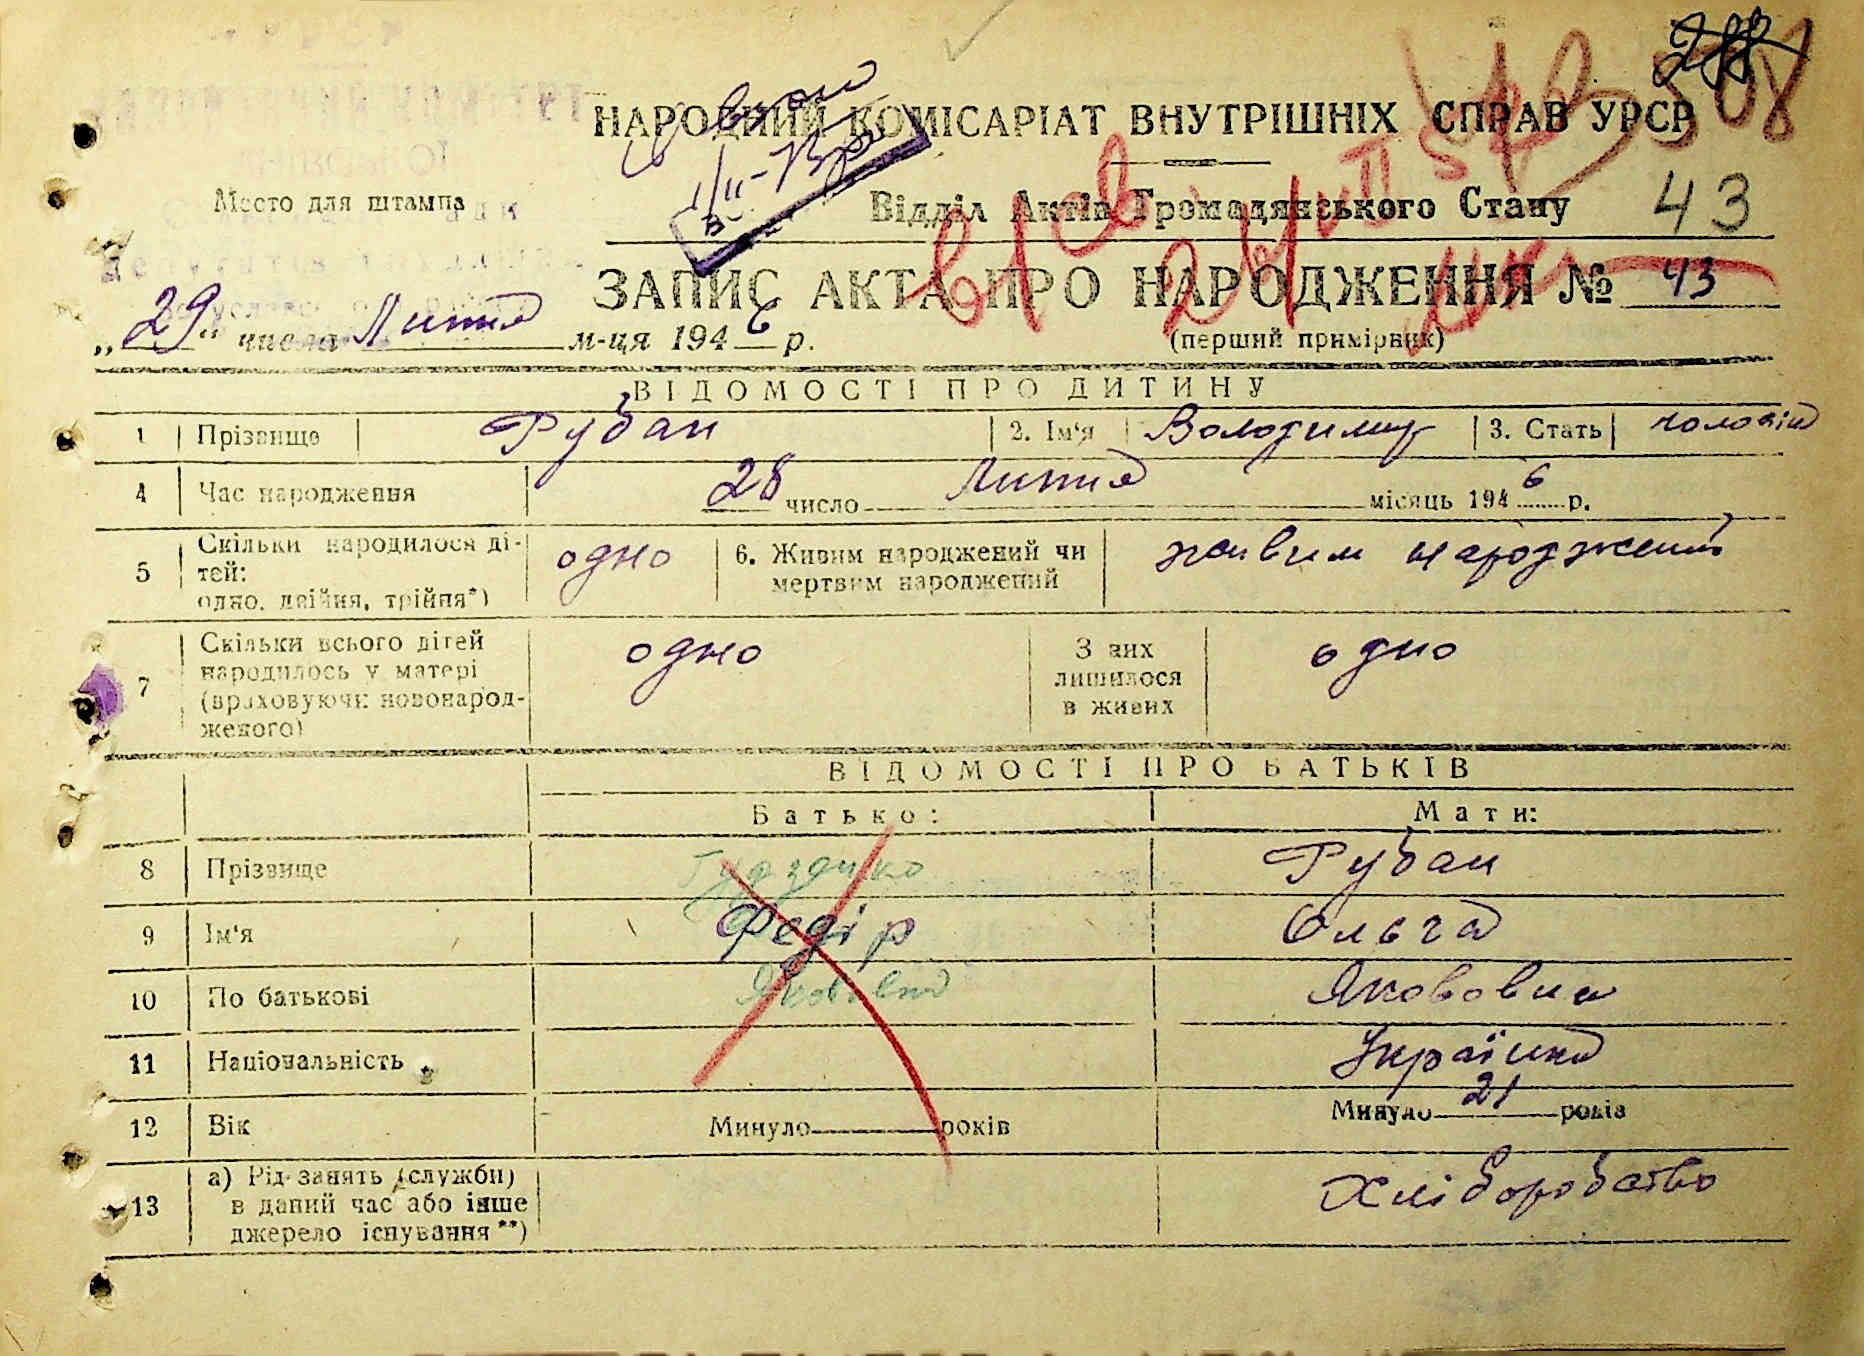 НАРОДНИЙ КОМІСАРІАТ ВНУТРІШНІХ СПРАВ УРСР
Место для штампа
Відділ Актів Громадянського Стану 43
ЗАПИС АКТА ПРО НАРОДЖЕННЯ № 43
„29“ числа Лютня м-ця 1946 р.
(перший примірник)
ВІДОМОСТІ ПРО ДИТИНУ
1 Прізвище Рубан 2. Ім'я Володимир 3. Стать чоловіч
4 Час народження 28 число Лютня місяць 1946 р.
5 Скільки народилося ді-
тей:
одно, двійня, трійня*) одно 6. Живим народжений чи
мертвим народжений живим народжений
7 Скільки всього дітей
народилось у матері
(враховуючи новонарод-
женого) одно З них
лишилося
в живих одно
ВІДОМОСТІ ПРО БАТЬКІВ
Батько: Мати:
8 Прізвище Рубан
9 Ім'я Федір Ольга
10 По батькові Яковович Якововна
11 Національність Українка
12 Вік Минуло років Минуло 21 років
13 а) Рід занять (служби)
в даний час або інше
джерело існування**) Хліборобство